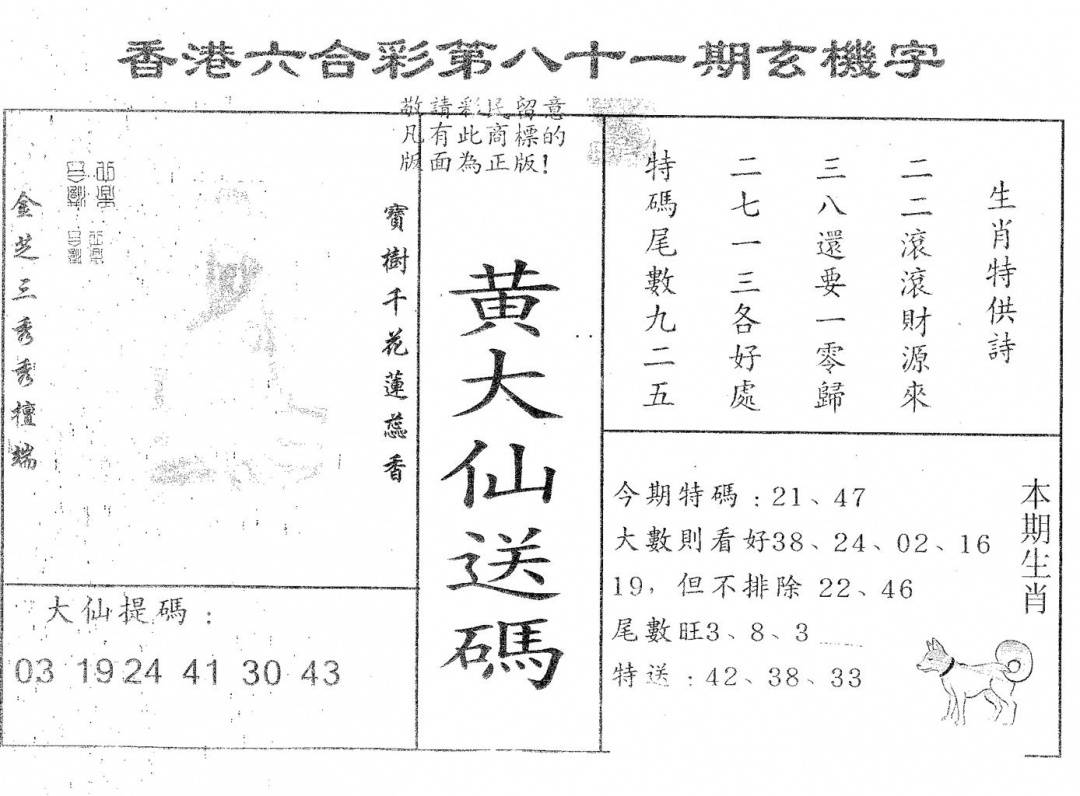 香港六合彩第八十一期玄機字
敬請彩民留意
凡有此商標的
版面為正版!
生肖特供詩
二二滾滾財源來
三八還要一零歸
二七一三各好處
特碼尾數九二五
黃大仙送碼
寶樹千花蓮蕊香
金芝三秀秀檀端
大仙提碼：
03 19 24 41 30 43
本期生肖
今期特碼：21、47
大數則看好38、24、02、16
19，但不排除 22、46
尾數旺3、8、3
特送：42、38、33